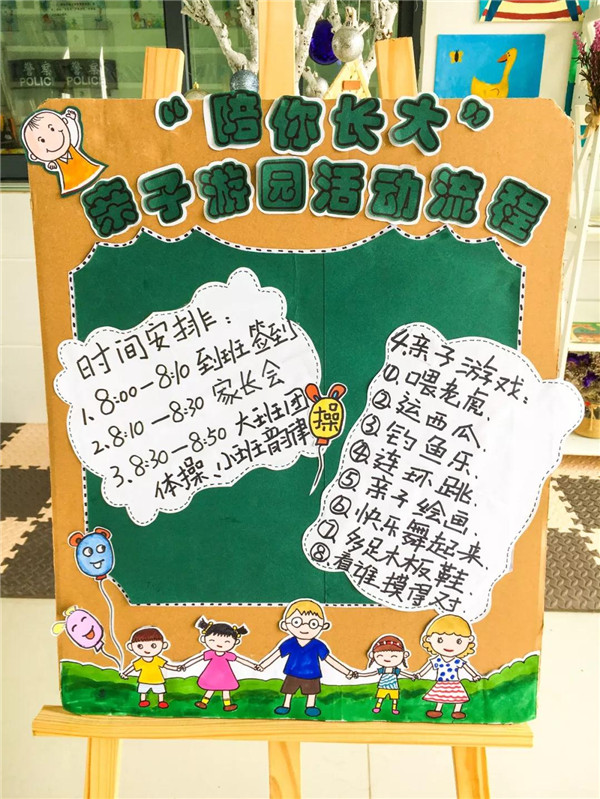 警察
POLICE
警察
POLICE
“陪你长大”
亲子游园活动流程
时间安排:
1. 8:00—8:10 到班签到
2. 8:10—8:30 家长会
3. 8:30—8:50 大班团
体操、小班韵律
操
4.亲子游戏:
①.喂老虎.
②.运西瓜.
③.钓鱼乐.
④.连环跳.
⑤.亲子绘画.
⑥.快乐舞起来.
⑦.多足木板鞋.
⑧.看谁摸得对.